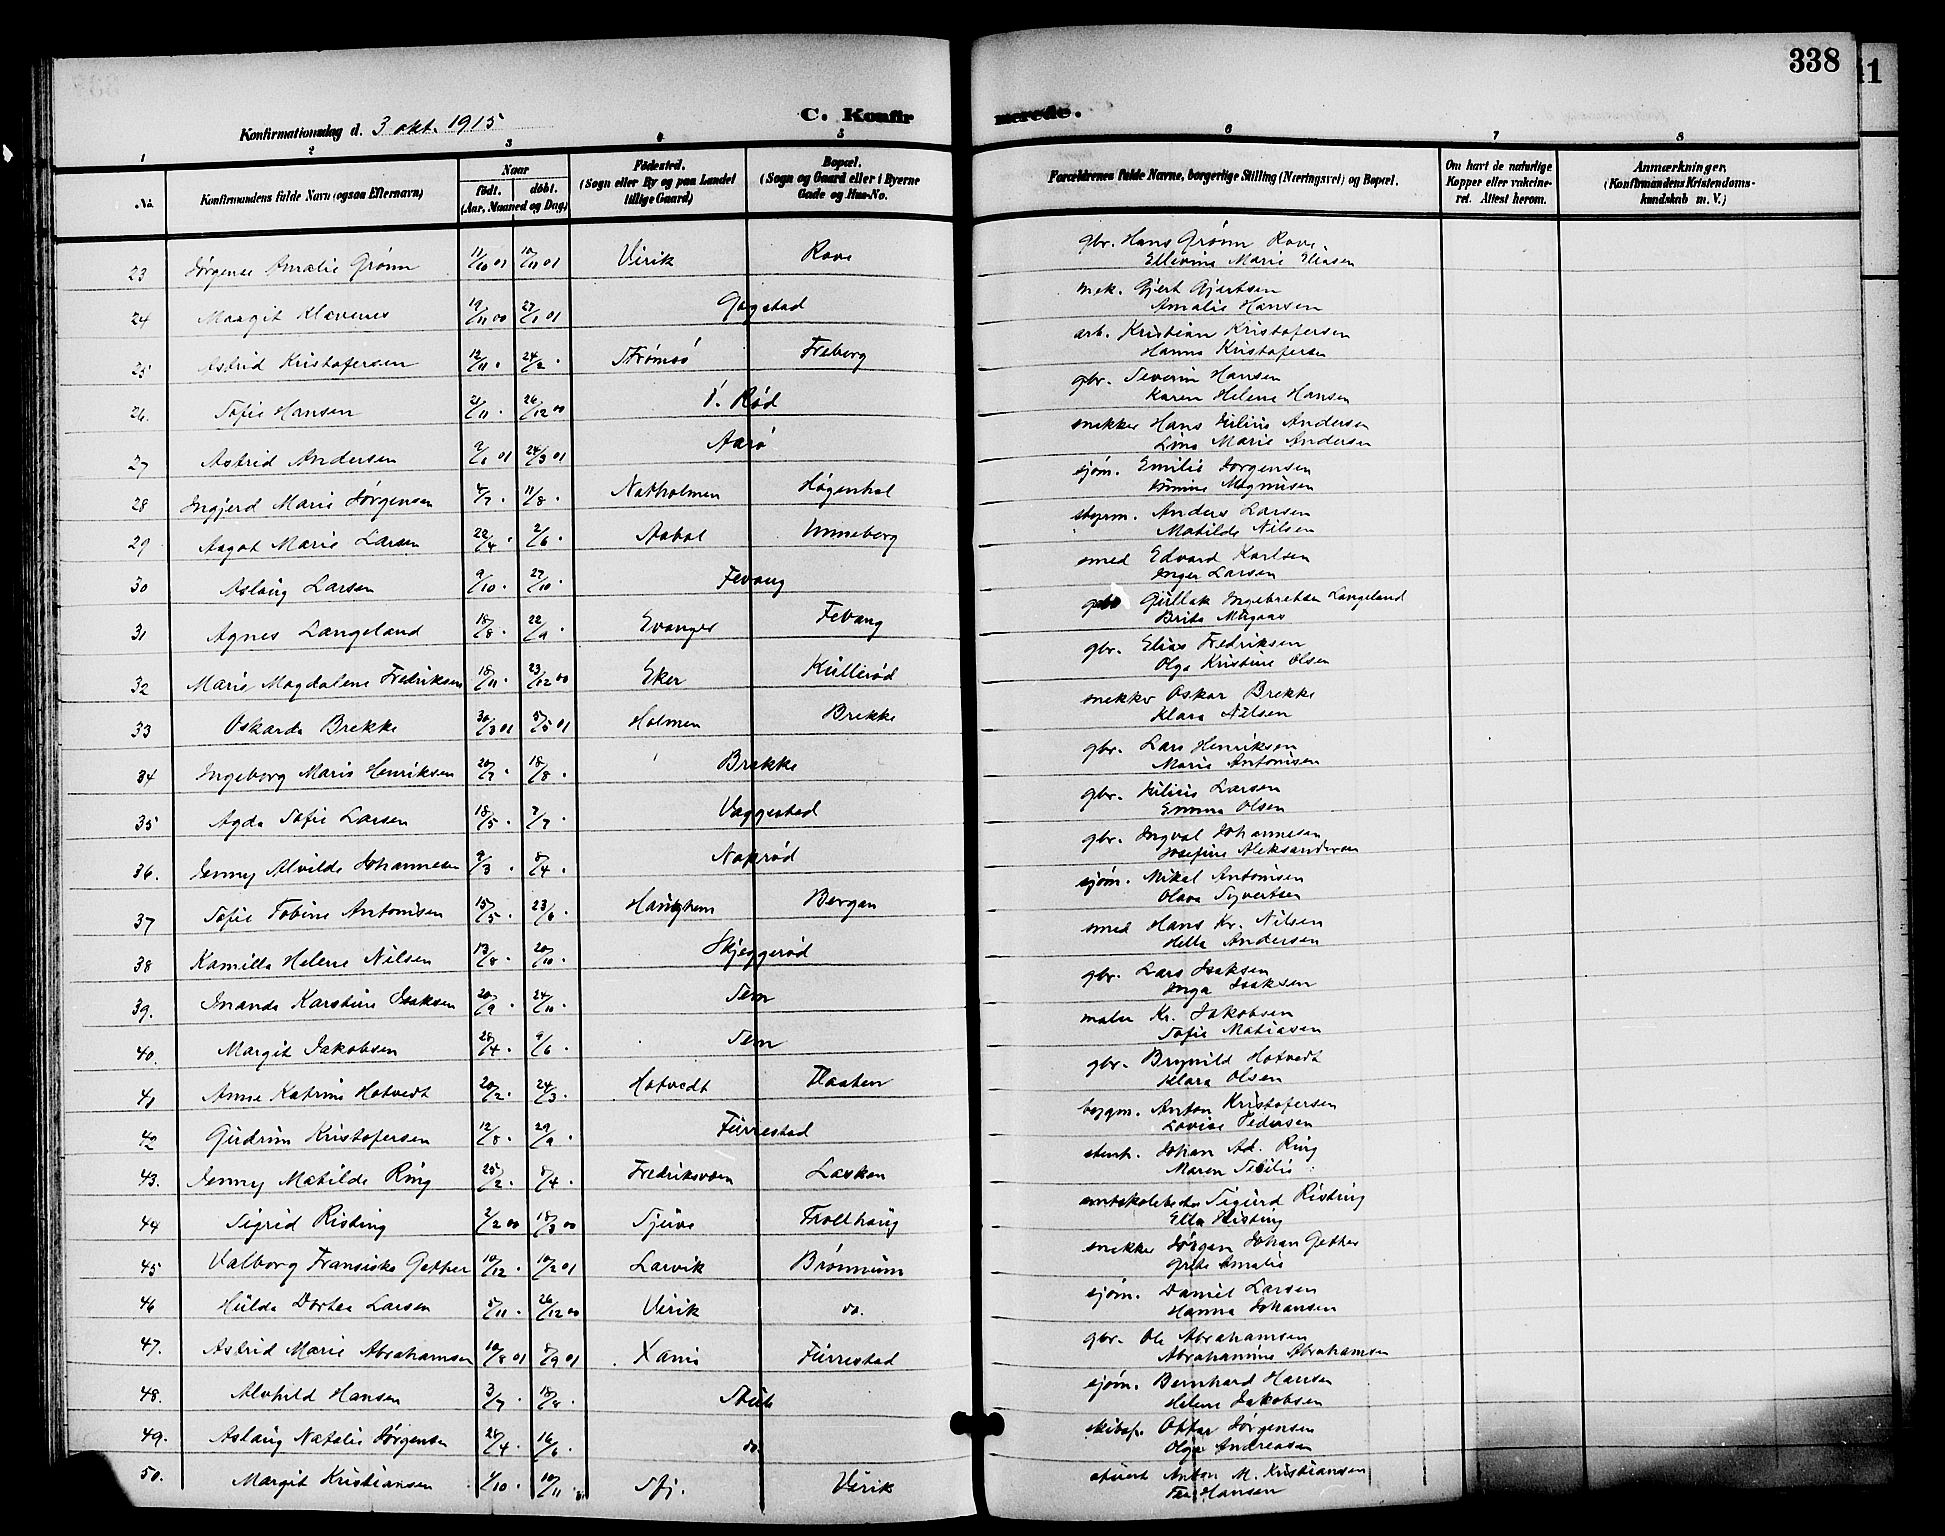 338
C. Konfirmerede.
Konfirmationsdag d. 3 okt. 1915
1 2 3 4 5 6 7 8
No.
Konfirmandens fulde Navn (ogsaa Efternavn)
Naar
födt. döbt.
(Aar, Maaned og Dag)
Födested.
(Sogn eller By og paa Landet
tillige Gaard)
Bopæl.
(Sogn og Gaard eller i Byerne
Gade og Hus-No.
Forældrenes fulde Navne, borgerlige Stilling (Næringsvei) og Bopæl.
Om havt de naturlige
Kopper eller vakcine-
ret. Attest herom.
Anmærkninger,
(Konfirmandens Kristendoms-
kundskab m. V.)
23 Jørgense Amalie Grønn 11/10 01 10/11 01 Virik Rove gbr. Hans Grønn Rove.
Ellevine Marie Eliasen
24 Margit Klavenes 19/11 00 27/1 01 Gogstad mek. Gjert Gjertsen
Amalie Hansen
25 Astrid Kristofersen 12/11 . 24/2 . Tromsø Freberg arb. Kristian Kristofersen
Hanna Kristofersen
26. Sofie Hansen 21/11 . 26/12 00 Ø. Rød gbr. Severin Hansen
Karen Helene Hansen
27 Astrid Andersen 9/1 01 24/3 01 Aarø snekker Hans Julius Andersen
Lina Marie Andersen
28 Ingjerd Marie Jørgensen 4/7 . 11/8 . Natholmen Høgenhal sjøm. Emilie Jørgensen
Magnusen
29 Aagot Marie Larsen 22/4 . 2/6 . Aabol Unneberg styrm. Anders Larsen
Matilde Nilsen
30 Aslaug Larsen 9/10 . 27/10 . Fevang smed Edvard Karlsen
Inger Larsen
31 Agnes Langeland 18/8 . 22/9 . Evanger Fevang gbr Gullak Ingebretsen Langeland
Brita
32 Marie Magdalene Fredriksen 18/11 . 23/12 00 Eker Kullerød gbr. Elias Fredriksen
Olga Kristine Olsen
33 Oskarda Brekke 30/3 01 5/5 01 Holmen Brekke snekker Oskar Brekke
Klara Nilsen
34 Ingeborg Marie Henriksen 20/7 . 18/8 . Brekke gbr. Lars Henriksen
Marie Antonisen
35 Agda Sofie Larsen 18/5 . 7/7 . Vaggestad gbr. Julius Larsen
Emma Olsen
36. Jenny Alvilde Johannesen 9/3 . 8/4 . Noprød gbr. Ingval Johannesen
Josefine Aleksandersen
37 Sofie Tobine Antonisen 15/5 . 23/6 . Haughem Bergan sjøm. Mikal Antonisen
Olava Syvertsen
38 Kamilla Helene Nilsen 13/8 . 20/10 . Skjeggerød smed Hans Kr. Nilsen
Hella Andersen
39. Inanda Karstine Isaksen 20/9 . 24/11 . Sem gbr. Lars Isaksen
Inga Isaksen
40. Margit Jakobsen 28/4 . 9/6 . Sem maler Kr. Jakobsen
Sofie Matiasen
41 Anne Katrine Hotvedt 20/2 . 24/3 . Hotvedt Flaaten gbr. Brynild Hotvedt
Klara Olsen
42 Gudrun Kristofersen 12/8 . 29/9 . Furrestad bygm. Anton Kristofersen
Lovise Pedersen
43. Jenny Matilde Ring 25/2 . 8/4 . Fredriksvæn Lasken stenh. Johan Ad. Ring
Maren
44 Sigrid Risting 2/2 00 18/3 00 Sjúve Trollhaug amtskolebest. Sigurd Risting
Ella Risting
45 Valborg Fransiska Gether 10/12 . 10/2 01 Larvik Brønnum snekker Jørgen Johan Gether
Grete Amalie
46 Hulda Dortea Larsen 5/11 . 26/12 00 Virik do. sjøm. Daniel Larsen
Hanna Johansen
47. Astrid Marie Abrahamsen 10/8 01 8/9 01 Furrestad gbr. Ole Abrahamsen
Abrahamine Abrahamsen
48. Alvhild Hansen 3/7 . 18/8 . Stub sjøm. Bernhard Hansen
Helene Jakobsen
49. Aslaug Natalie Jørgensen 26/4 . 16/6 . do. skibsf. Ottar Jørgensen
Olga Andreasen
50. Margit Kristiansen 1/10 . 10/11 . Sfj. Virik stuert Anton M. Kristiansen
Hansen